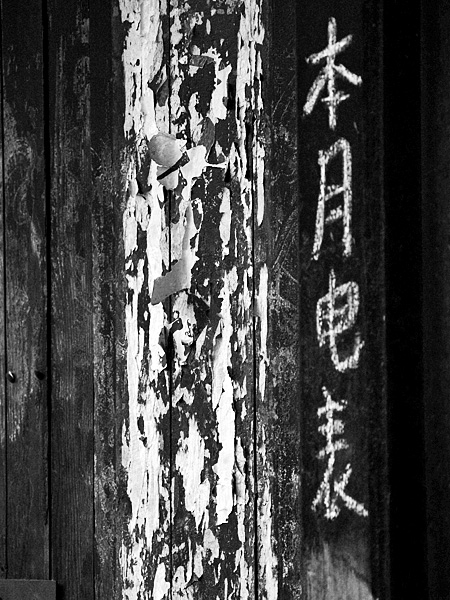 本月电表